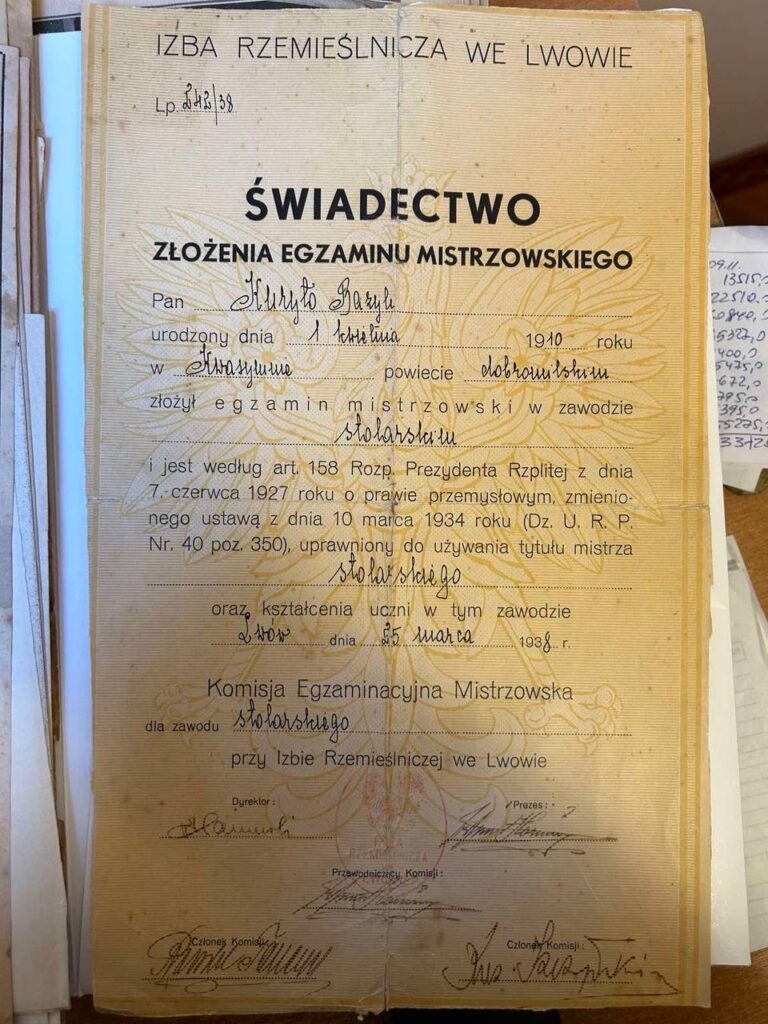 IZBA RZEMIEŚLNICZA WE LWOWIE
Lp. 242/38
ŚWIADECTWO
ZŁOŻENIA EGZAMINU MISTRZOWSKIEGO
Pan Kuryło Bazyli
urodzony dnia 1 kwietnia 1910 roku
w Kwasyninie powiecie dobromilskim
złożył egzamin mistrzowski w zawodzie
stolarskim
i jest według art. 158 Rozp. Prezydenta Rzplitej z dnia
7. czerwca 1927 roku o prawie przemysłowym, zmienio-
nego ustawą z dnia 10 marca 1934 roku (Dz. U. R. P.
Nr. 40 poz. 350), uprawniony do używania tytułu mistrza
stolarskiego
oraz kształcenia uczni w tym zawodzie
Lwów dnia 25 marca 1938 r.
Komisja Egzaminacyjna Mistrzowska
dla zawodu stolarskiego
przy Izbie Rzemieślniczej we Lwowie
Dyrektor:
Prezes:
IZBA
RZEMIEŚLNICZA
Przewodniczący Komisji:
Członek Komisji:
Członek Komisji:
09.11.
13515,0
22510,0